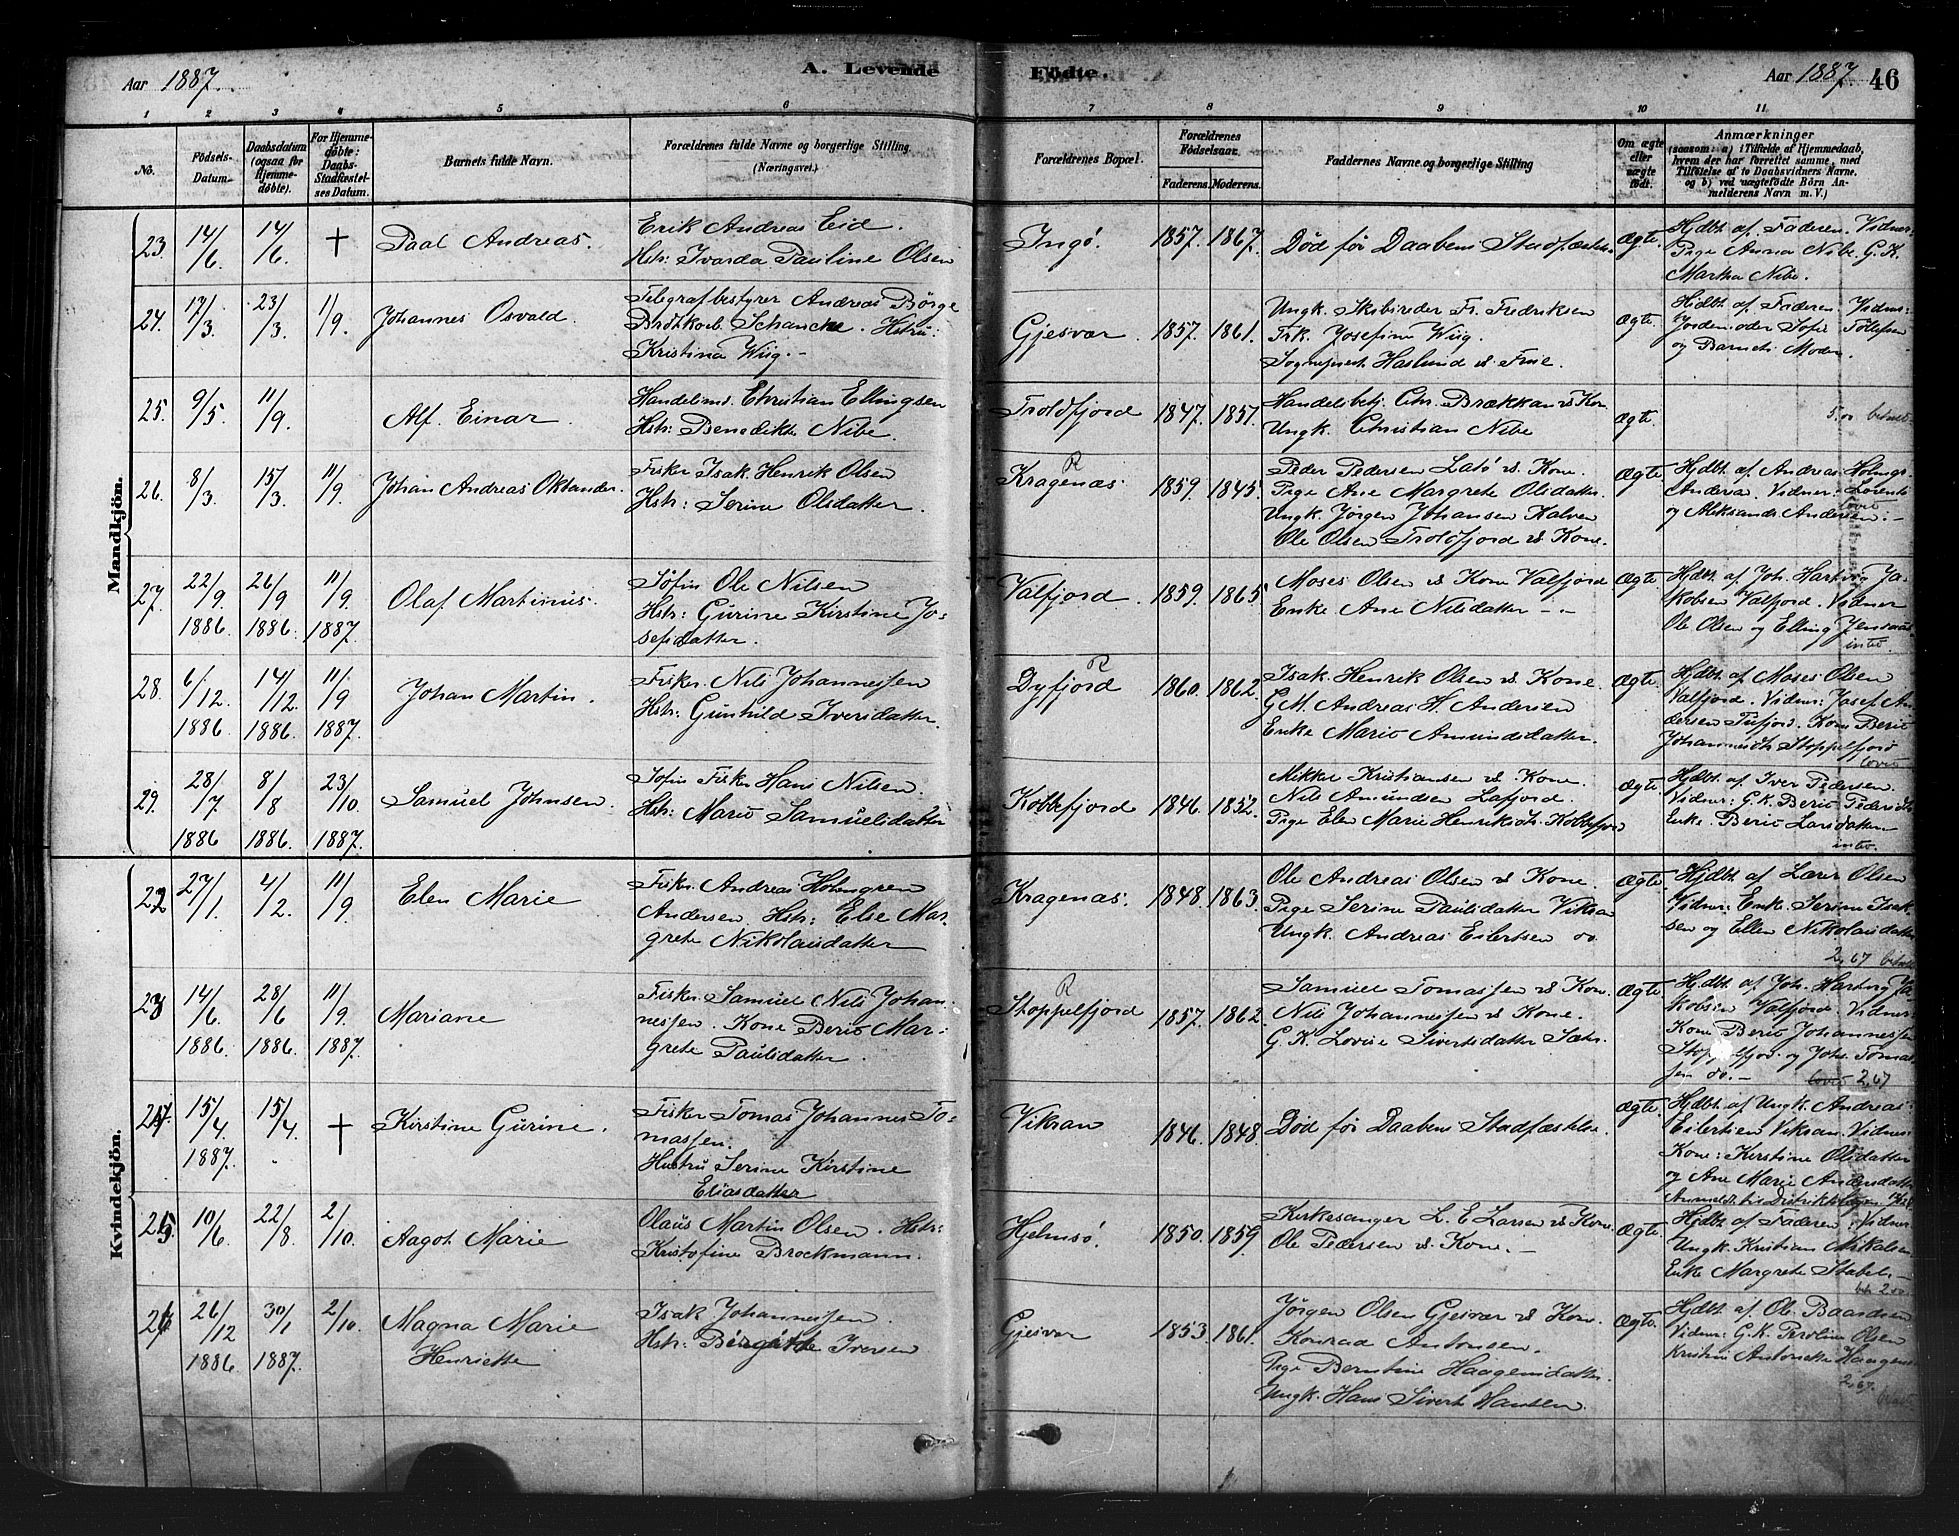 Aar 1887.
A. Levende
Födte.
Aar 1887. 46
1 2 3 4 5 6 7 8 9 10 11
No.
Födsels-Datum.
Daabsdatum (ogsaa for Hjemme-döbte).
For Hjemme-döbte: Daabs-Stadfæstel-ses Datum.
Barnets fulde Navn.
Forældrenes fulde Navne og borgerlige Stilling
(Næringsvei.)
Forældrenes Bopæl.
Forældrenes Födselsaar.
Faderens. Moderens.
Faddernes Navne og borgerlige Stilling
Om ægte eller uægte födt.
Anmærkninger
(saasom: a) i Tilfælde af Hjemmedaab, hvem der har forrettet samme, med Tilföielse af to Daabsvidners Navne. og b) ved uægtefödte Börn An-melderens Navn m. V.)
Mandkjön.
23. 14/6 14/6 + Paal Andreas.
Erik Andreas Eid.
Hstr: Ivarda Pauline Olsen
Ingö. 1857. 1867. Död för Daabens Stadfæstelse Ægte.
Hjdbt. af Faderen. Vidner:
Pige Anna Nibe. G. K.
Martha Nibe.
24. 17/3 23/3 11/9. Johannes Osvald
Telegrafbestyrer Andreas Börge
Brötkorb Schancke. Hstru:
Kristina Wiig.
Gjesvær. 1857. 1861.
Ungk. Skibsreder Fr. Fredriksen
Frk. Josefine Wiig.
Sognepræst Haslund & Frue.
Ægte.
Hjdbt. af Faderen. Vidner:
Jordemoder Sofie Tollefsen
og Barnets Moder.
25. 9/5 11/9. Alf Einar.
Handelsmd. Christian Ellingsen
Hstr: Benedikte Nibe.
Troldfjord 1847. 1857.
Handelsbetj. Chr. Brækkan & Kone
Ungk. Christian Nibe
Ægte.
5.00 betalt
26. 8/3 15/3 11/9 Johan Andreas Oktander.
Fisker Isak Henrik Olsen
Hstr: Serine Olsdatter.
R
Kragenæs. 1859. 1845.
Peder Pedersen Latö & Kone.
Pige Ane Margrete Olsdatter.
Ungk. Jörgen Johansen Kalven
Ole Olsen Troldfjord & Kone.
Ægte.
Hjdbt. af Andreas Holmgr.
Andersen. Vidner: Lorents
og Aleksander Andersen.
27. 22/9 1886. 26/9 1886. 11/9. 1887. Olaf Martinus.
Söfin Ole Nilsen
Hstr: Gurine Kirstine Jo-
sefsdatter.
Valfjord. 1859. 1865.
Moses Olsen & Kone Valfjord
Enke Ane Nilsdatter
Ægte
Hjdbt. af Joh. Hartvig Ja-
kobsen Valfjord. Vidner
Ole Olsen og Elling Jensen
28. 6/12 1886. 14/12. 1886. 11/9 1887. Johan Martin.
Fisker Nils Johannessen
Hstr: Gunhild Iversdatter.
R
Dyfjord 1860. 1862.
Isak Henrik Olsen & Kone.
G. M. Andreas H. Andersen
Enke Marit Amundsdatter.
Ægte.
Hjdbt. af Moses Olsen
Valfjord. Vidner: Josef An-
dersen Tufjord. Kone Berit
Johannesdtr. Stoppelfjord
29. 28/7 1886 8/8 1886. 23/10. 1887. Samuel Johnsen.
Söfin Fisker Hans Nilsen.
Hstr: Marit Samuelsdatter
Kobbefjord 1846. 1852.
Mikkel Kristiansen & Kone.
Nils Amundsen Lafjord.
Pige Elen Marie Henriksdtr. Kobbefjord
Ægte.
Hjdbt. af Iver Pedersen.
Vidner: G.K. Berit Pedersdtr
Enke Berit Larsdatter.
Kvindekjön.
22 27/1. 4/2. 11/9 Elen Marie
Fisker Andreas Holmgren
Andersen Hstr: Else Mar-
grete Nikolaisdatter
Kragenæs. 1848. 1863.
Ole Andreas Olsen & Kone.
Pige Serine Paulsdatter Viksan
Ungk. Andreas Eilertsen do.
Ægte.
Hjdbt. af Lærer Olsen
Vidner: Enke Serine Isak-
sen og Ellen Nikolaisdatter
2,67 betalt
23 14/6 1886. 28/6 1886. 11/9. 1887. Mariane
Fisker Samuel Nils Johan-
nessen. Kone Berit Mar-
grete Paulsdatter.
R
Stoppelfjord 1857. 1862.
Samuel Tomassen & Kone.
Nils Johannessen & Kone.
G. K. Lovise Sivertsdatter Sæhr.
Ægte.
Hjdbt. af Joh. Hartvig Ja-
kobsen Valfjord. Vidner
Kone Berit Johannessen
Stoppelfjord og Johs. Tomas-
sen do.
2,67
24. 15/4. 1887. 15/4. + Kirstine Gurine.
Fisker Tomas Johannes To-
massen.
Hustru Serine Kirstine
Eliasdatter
Viksan 1846. 1848. Död för Daabens Stadfæstelse.
Ægte.
Hjdbt. af Ungk. Andreas
Eilertsen Viksan. Vidner:
Kone: Kirstine Olsdatter
og Ane Marie Andersdatter
25. 10/6. 22/8. 2/10. Aagot Marie
Olaus Martin Olsen. Hstr:
Kristofine Brockmann.
Hjelmsö. 1850. 1859
Kirkesanger L. E. Larsen & Kone.
Ole Pedersen & Kone.
Ægte.
Hjdbt. af Faderen. Vidner
Ungk. Kristian Mikalsen
Enke Margrete Stabel.
26 26/12 1886. 30/1 1887. 2/10. Magna Marie
Henriette
Isak Johannessen.
Hstr: Bergitte Iversen
Gjesvær 1853. 1861.
Jörgen Olsen Gjesvær & Kone.
Konrad Antonsen.
Pige Berntine Haagensdatter.
Ungk. Hans Sivert Hansen.
Ægte.
Hjdbt. af Ole Baardsen
Vidner: G.K. Peroline Olsen
Kristine Antonette Haagens
2,67. betalt